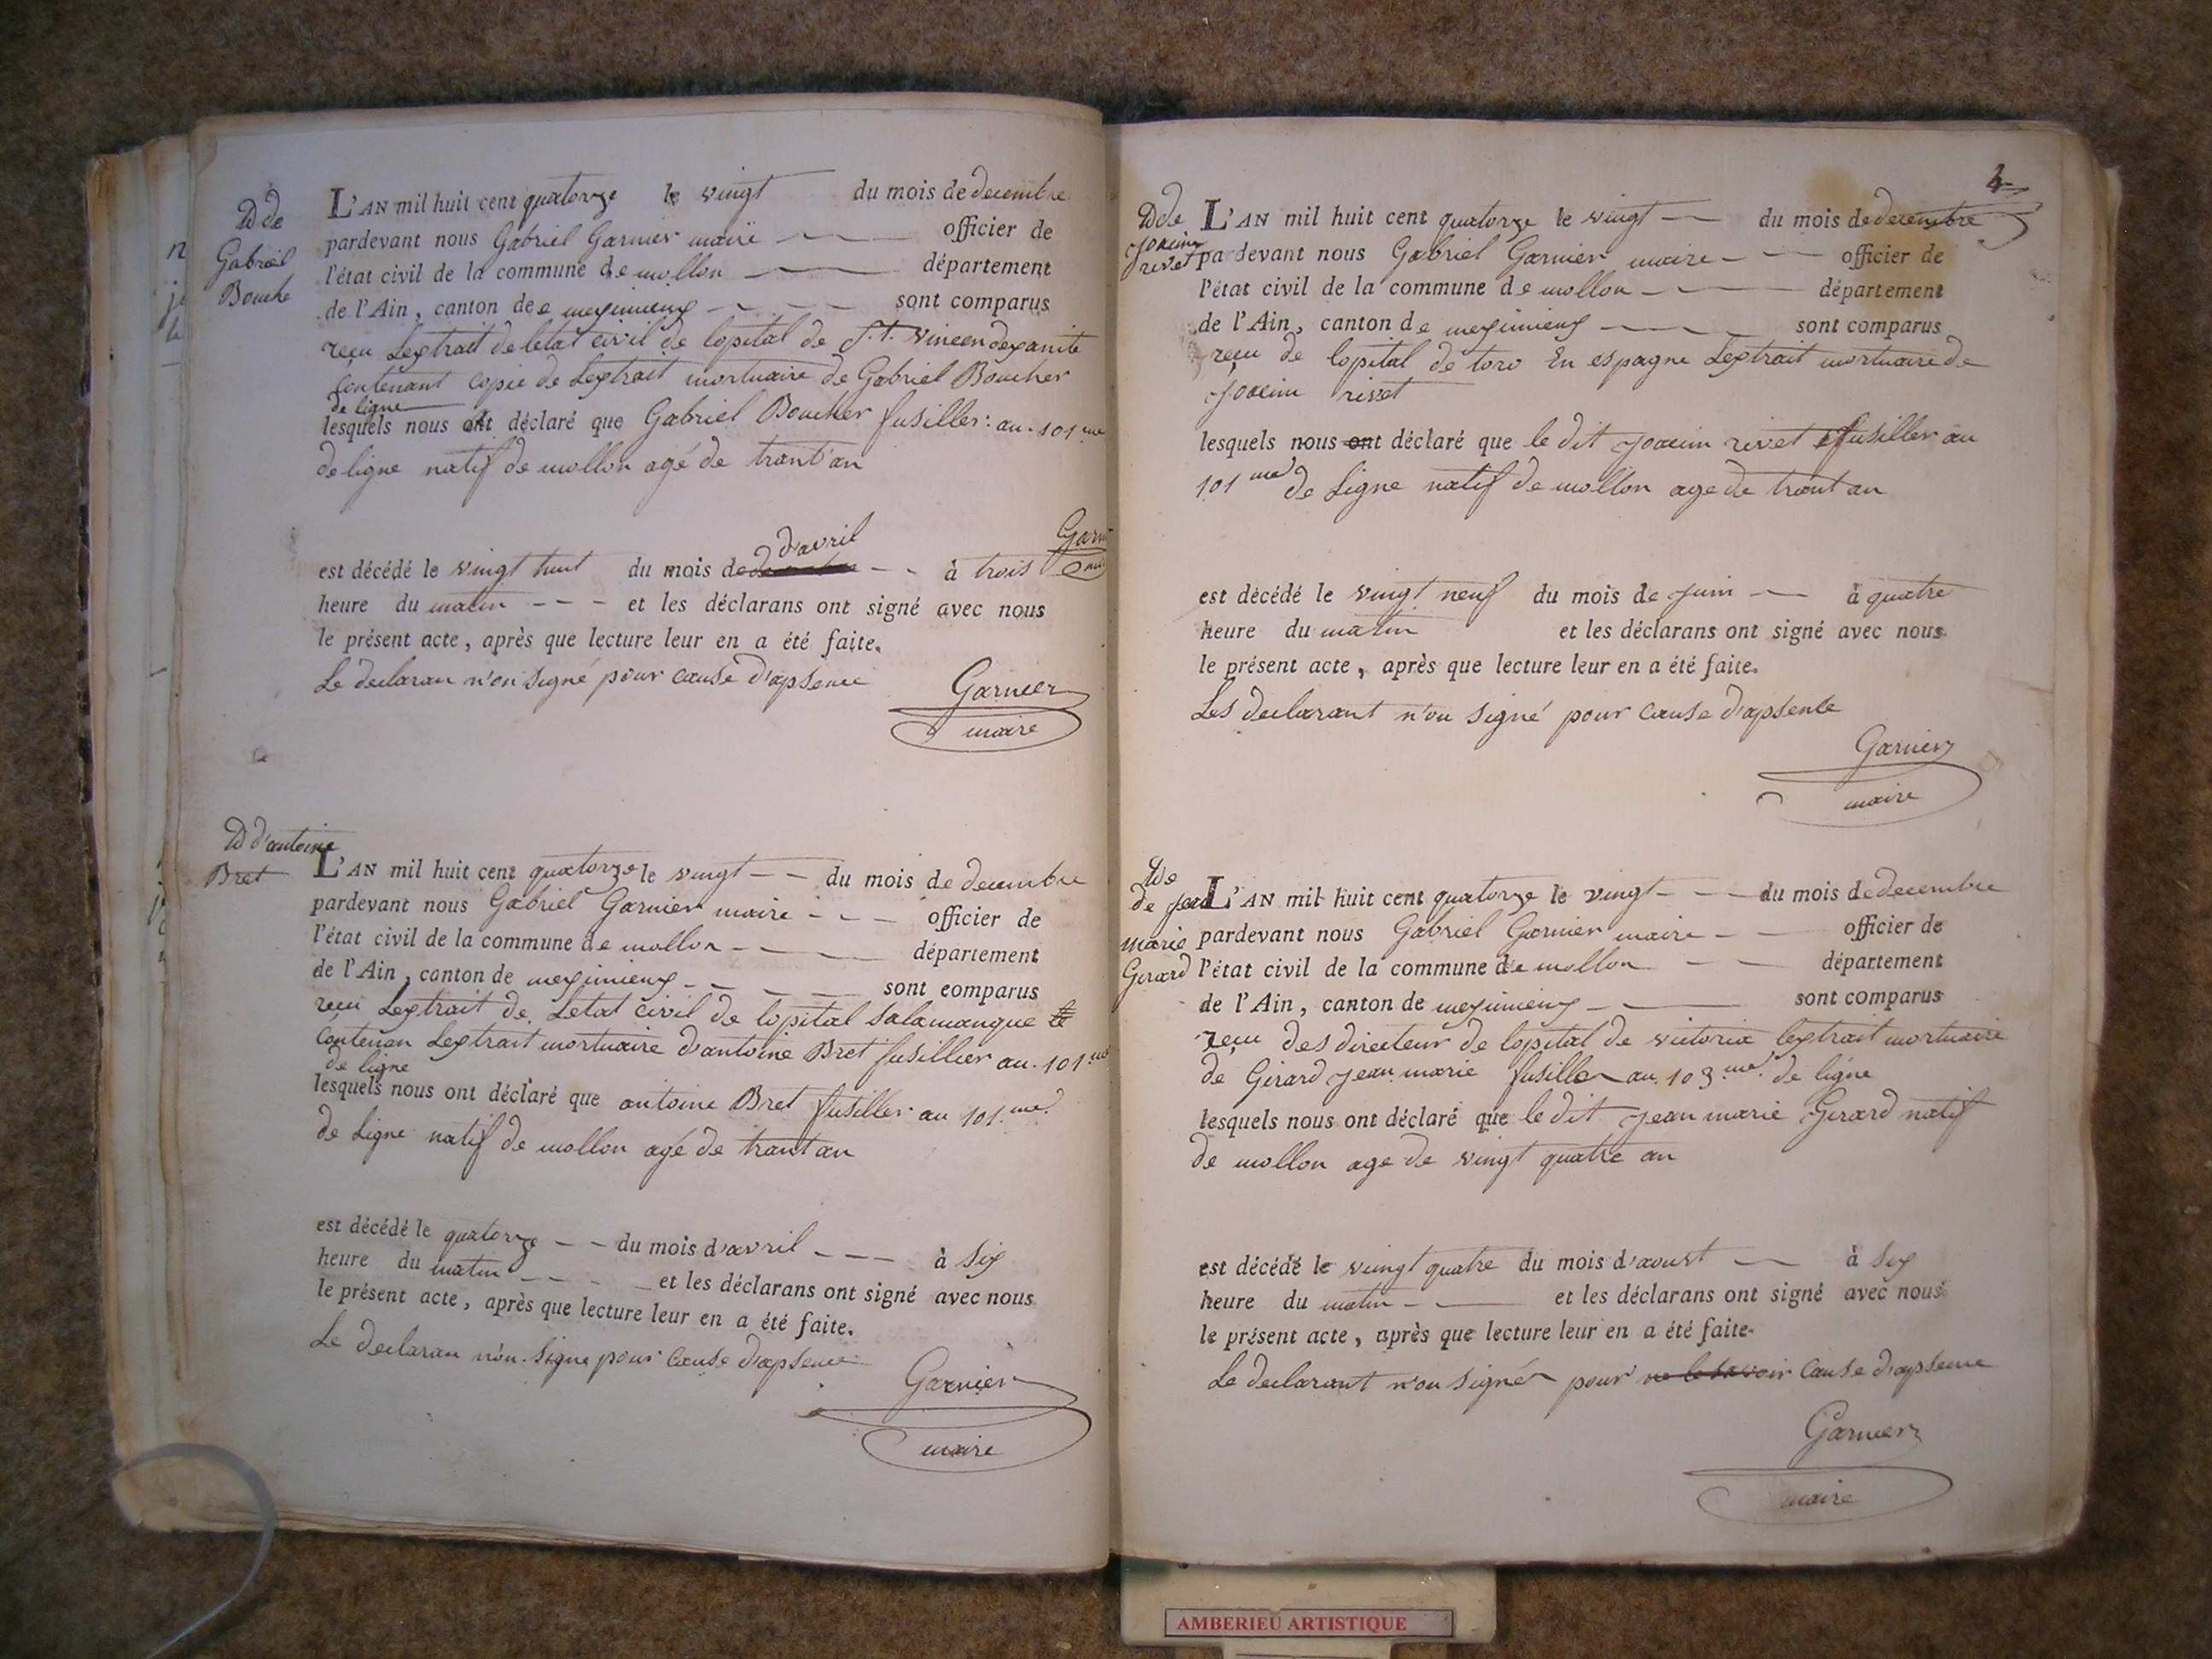 D de
Gabriel
Bouche
L'AN mil huit cent quatorze le vingt du mois de decembre
pardevant nous Gabriel Garnier maire officier de
l'état civil de la commune de mollon département
de l'Ain, canton de meximieux sont comparus
reçu Lextrait de letat civil de lopital de S.t. vincen
contenant copie de Lextrait mortuaire de Gabriel Boucher
de ligne
lesquels nous ont déclaré que Gabriel Boucher fusiller au 101 me
de ligne natif de mollon agé de trant'an
d'avril
est décédé le vingt huit du mois de à trois
heure du matin et les déclarans ont signé avec nous
le présent acte, après que lecture leur en a été faite.
Le declaran n'on signé pour cause d'apsence
Garnier
maire
D d'antoine
Bret
L'AN mil huit cent quatorze le vingt du mois de decembre
pardevant nous Gabriel Garnier maire officier de
l'état civil de la commune de mollon département
de l'Ain, canton de meximieux sont comparus
reçu Lextrait de Letat civil de lopital salamanque
contenan Lextrait mortuaire d'antoine Bret fusillier au 101 me
de ligne
lesquels nous ont déclaré que antoine Bret fusiller au 101 me
de Ligne natif de mollon agé de trant an
est décédé le quatorze du mois d'avril à six
heure du matin et les déclarans ont signé avec nous
le présent acte, après que lecture leur en a été faite.
Le declaran n'on signe pour cause d'apsence
Garnier
maire
4
D de
joacim
rivet
L'AN mil huit cent quatorze le vingt du mois de decembre
pardevant nous Gabriel Garnier maire officier de
l'état civil de la commune de mollon département
de l'Ain, canton de meximieux sont comparus
reçu de lopital de toro En espagne Lextrait mortuaire de
joacim rivet
lesquels nous ont déclaré que le dit joacim rivet fusiller au
101 me de Ligne natif de mollon age de trant an
est décédé le vingt neuf du mois de juin à quatre
heure du matin et les déclarans ont signé avec nous
le présent acte, après que lecture leur en a été faite.
Les declarant n'on signé pour cause d'apsence
Garnier
maire
de jean
marie
Girard
L'AN mil huit cent quatorze le vingt du mois de decembre
pardevant nous Gabriel Garnier maire officier de
l'état civil de la commune de mollon département
de l'Ain, canton de meximieux sont comparus
reçu des directeur de lopital de victoria lextrait mortuaire
de Girard jean marie fusiller au 103 me de ligne
lesquels nous ont déclaré que le dit jean marie Girard natif
de mollon age de vingt quatre an
est décédé le vingt quatre du mois d'aoust à six
heure du matin et les déclarans ont signé avec nous
le présent acte, après que lecture leur en a été faite.
Le declarant n'on signé pour ne le savoir cause d'apsence
Garnier
maire
AMBERIEU ARTISTIQUE